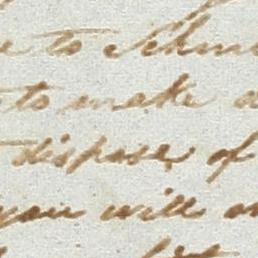 to
to make a
dispose of
you will